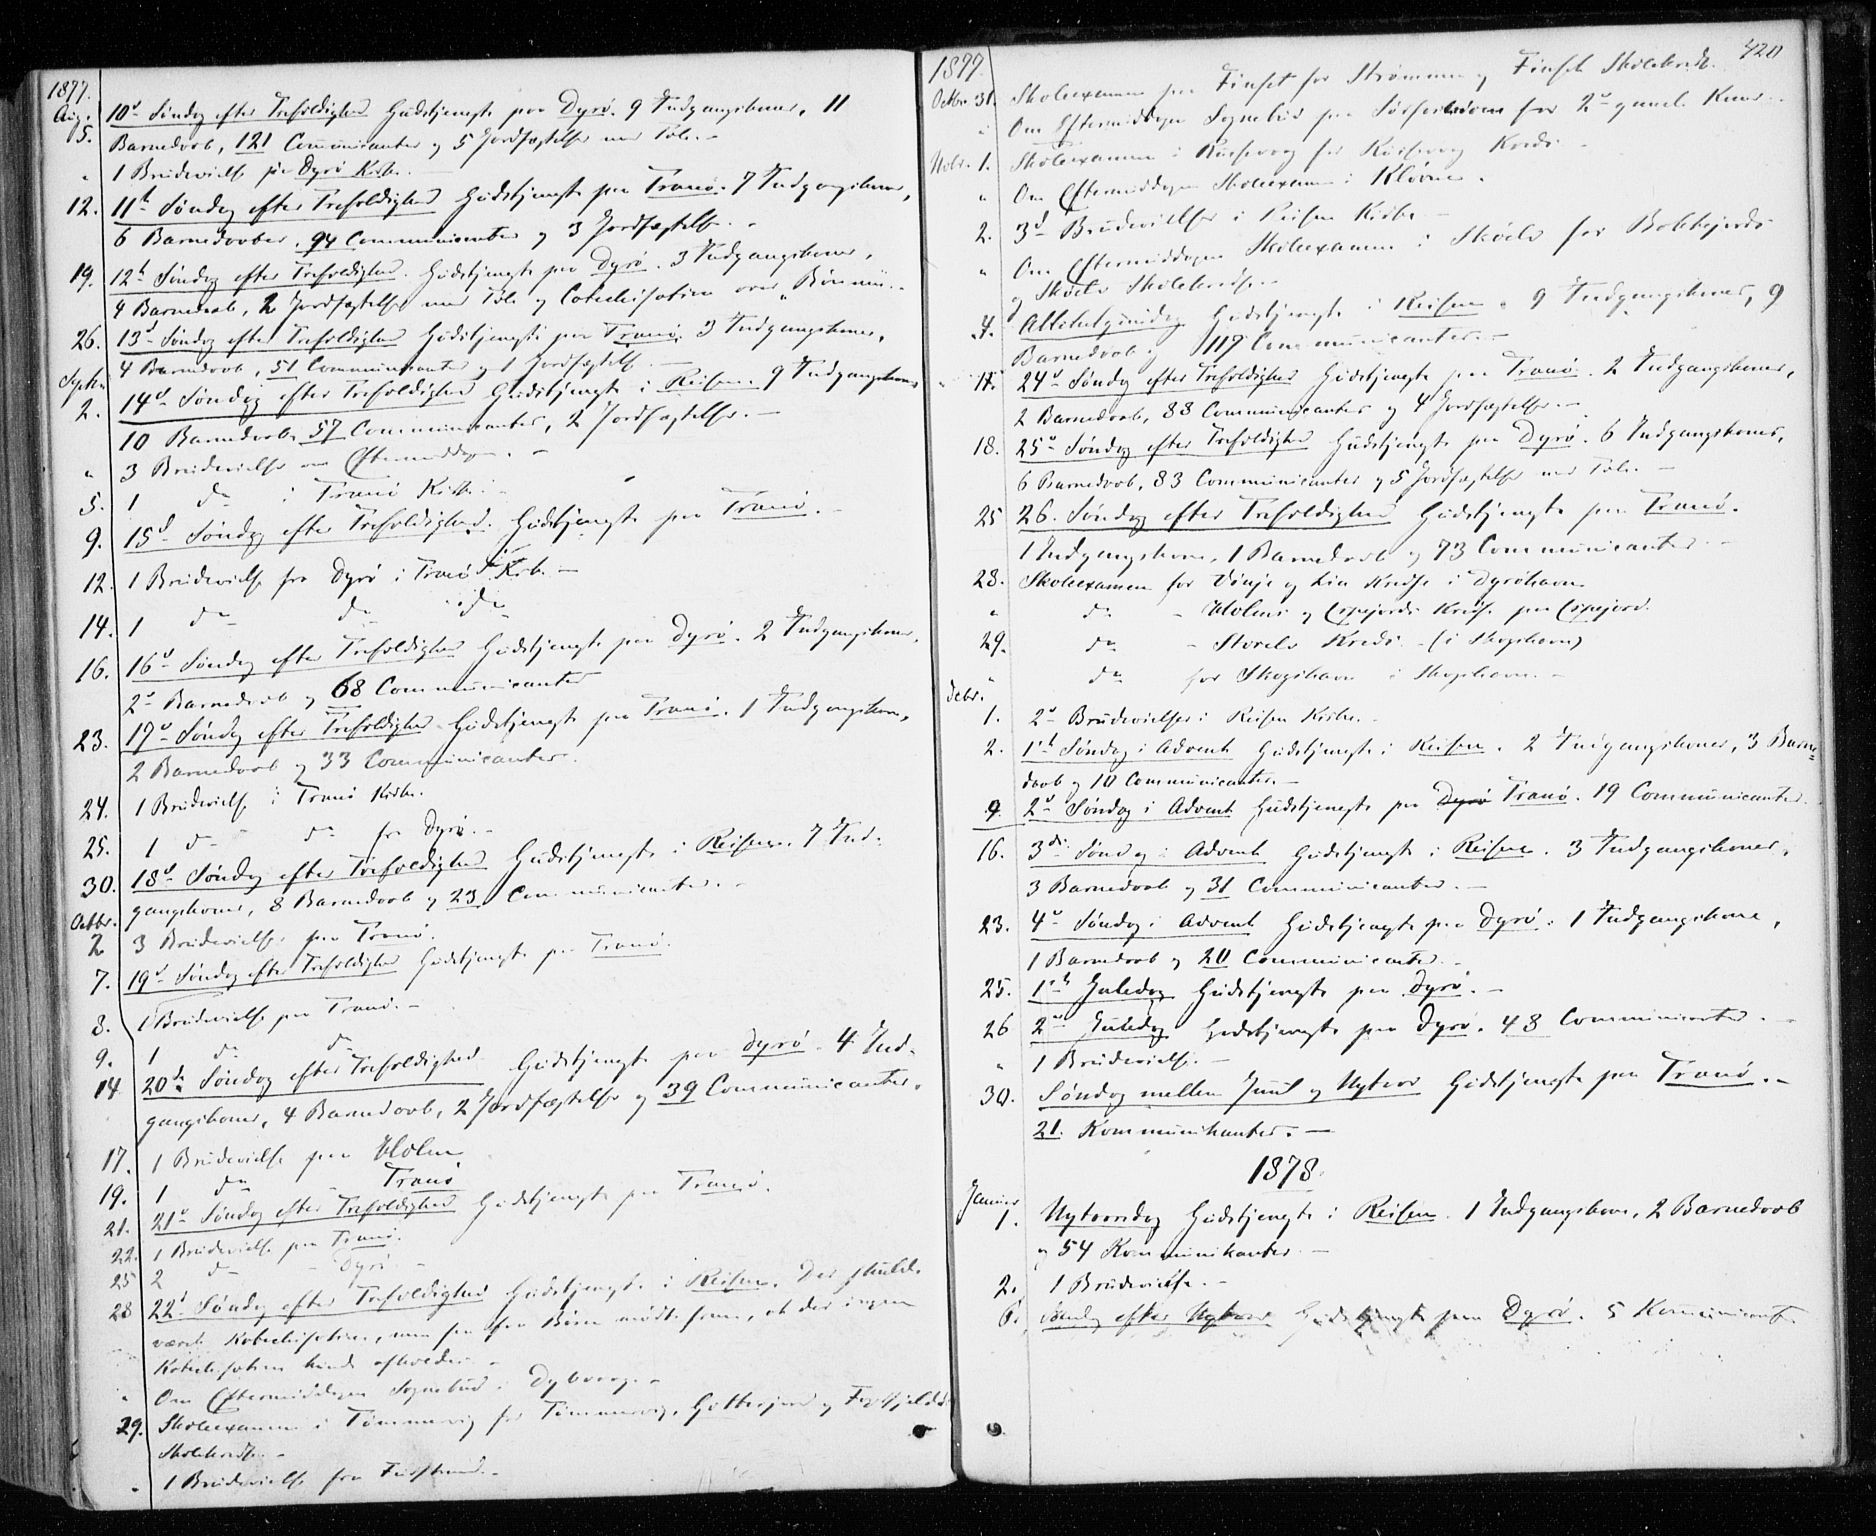 1877.
Aug. 5. 10de Søndag efter Trefoldighed Gudstjeneste paa Dyrö. 9 Indgangskoner, 11
Barnedaab, 121 Communicanter og 5 Jordfæstelser med Tale. –
" 1 Brudevielse paa Dyrö Kirke.
12. 11te Søndag efter Trefoldighed Gudstjeneste paa Tranö. 7 Indgangskoner,
6 Barnedaaber, 94 Communicanter og 3 Jordfæstelser. –
19. 12te Søndag efter Trefoldighed. Gudstjeneste paa Dyrö. 3 Indgangskoner,
4 Barnedaab, 2 Jordfæstelser med Tale og Catechisation over
26. 13de Søndag efter Trefoldighed Gudstjeneste paa Tranö. 3 Indgangskoner,
4 Barnedaab, 51 Communicanter og 1 Jordfæstelse. –
Septbr. 2. 14de Søndag efter Trefoldighed Gudstjeneste i Reisen. 9 Indgangskoner
10 Barnedaab, 57 Communicanter, 2 Jordfæstelser. –
" 3 Brudevielser om Eftermiddagen. –
5. 1 do i Tranö Kirke. –
9. 15de Søndag efter Trefoldighed. Gudstjeneste paa Tranö. –
12. 1 Brudevielse fra Dyrö i Tranö Kirke –
14. 1 do do do
16. 16de Søndag efter Trefoldighed Gudstjeneste paa Dyrö. 2 Indgangskoner,
2 Barnedaab og 68 Communicanter
23. 17de Søndag efter Trefoldighed Gudstjeneste paa Tranö. 1 Indgangskone,
2 Barnedaab og 33 Communicanter.
24. 1 Brudevielse i Tranö Kirke.
25. 1 do do fra Dyrö. –
30. 18de Søndag efter Trefoldighed Gudstjeneste i Reisen. 7 Ind-
gangskoner, 8 Barnedaab og 23 Communicanter. –
Octbr. 2 3 Brudevielser paa Tranö.
7. 19de Søndag efter Trefoldighed Gudstjeneste paa Tranö.
8. 1 Brudevielse paa Tranö. –
9. 1 do do
14 20de Søndag efter Trefoldighed Gudstjeneste paa Dyrö. 4 Ind-
gangskoner, 4 Barnedaab, 2 Jordfæstelser og 39 Communicanter.
17. 1 Brudevielse paa Holm
19. 1 do – Tranö
21. 21de Søndag efter Trefoldighed Gudstjeneste paa Tranö.
22. 1 Brudevielse paa Tranö.
25 2 do – Dyrö. –
28 22de Søndag efter Trefoldighed Gudstjeneste i Reisen. Der skulde
været Katechisation, men saa faa Børn mødte frem, at der ingen
Katechisation kunde afholdes. –
" Om Eftermiddagen Sognebud i Dyb
29. Skoleexamen i Tömmervig for Tömmervig, og
Skolekredse. –
" 1 Brudevielse fra –
1877. 420
Octbr. 31. Skoleexamen paa Finset for Strømmen og Finset Skolekreds.
" Om Eftermiddagen Sognebud paa for 2de gamle
Novbr. 1. Skoleexamen i for Kreds –
" Om Eftermiddagen Skoleexamen i Klöven.
2. 3de Brudevielser i Reisen Kirke –
" Om Eftermiddagen Skoleexamen i Sköelv for
og Sköelv Skolekredse. –
4. Allehelgensdag Gudstjeneste i Reisen. 9 Indgangskoner, 9
Barnedaab og 119 Communicanter. –
11. 24de Søndag efter Trefoldighed Gudstjeneste paa Tranö. 2 Indgangskoner,
2 Barnedaab, 88 Communicanter og 4 Jordfæstelser. –
18. 25de Søndag efter Trefoldighed Gudstjeneste paa Dyrö. 6 Indgangskoner,
6 Barnedaab, 83 Communicanter og 5 Jordfæstelser med Tale. –
25 26. Søndag efter Trefoldighed Gudstjeneste paa Tranö.
1 Indgangskone, 1 Barnedaab og 73 Communicanter. –
28. Skoleexamen for Vinje og Lia Kredse i Dyröhavn
" do – Holms og Kreds paa
29. do – Storelv Kreds – (i Skogshavn)
" do for Skogshavn i Skogshavn. –
Debr. 1. 2de Brudevielser i Reisen Kirke. –
2. 1ste Søndag i Advent Gudstjeneste i Reisen. 2 Indgangskoner, 3 Barne-
daab og 10 Communicanter. –
9. 2de Søndag i Advent Gudstjeneste paa Dyrö Tranö. 19 Communicanter.
16. 3die Søndag i Advent Gudstjeneste i Reisen. 3 Indgangskoner,
3 Barnedaab og 31 Communicanter. –
23. 4de Søndag i Advent Gudstjeneste paa Dyrö. 1 Indgangskone,
1 Barnedaab og 20 Communicanter. –
25. 1ste Juledag Gudstjeneste paa Dyrö. –
26 2den Juledag Gudstjeneste paa Dyrö. 48 Communicanter. –
" 1 Brudevielse. –
30. Søndag mellem Juul og Nytaar Gudstjeneste paa Tranö. –
21. Kommunikanter. –
1878.
Januar 1. Nytaarsdag Gudstjeneste i Reisen. 1 Indgangskone, 2 Barnedaab
og 54 Kommunikanter. –
2. 1 Brudevielse. –
6. Søndag efter Nytaar Gudstjeneste paa Dyrö. 5 Kommunicanter